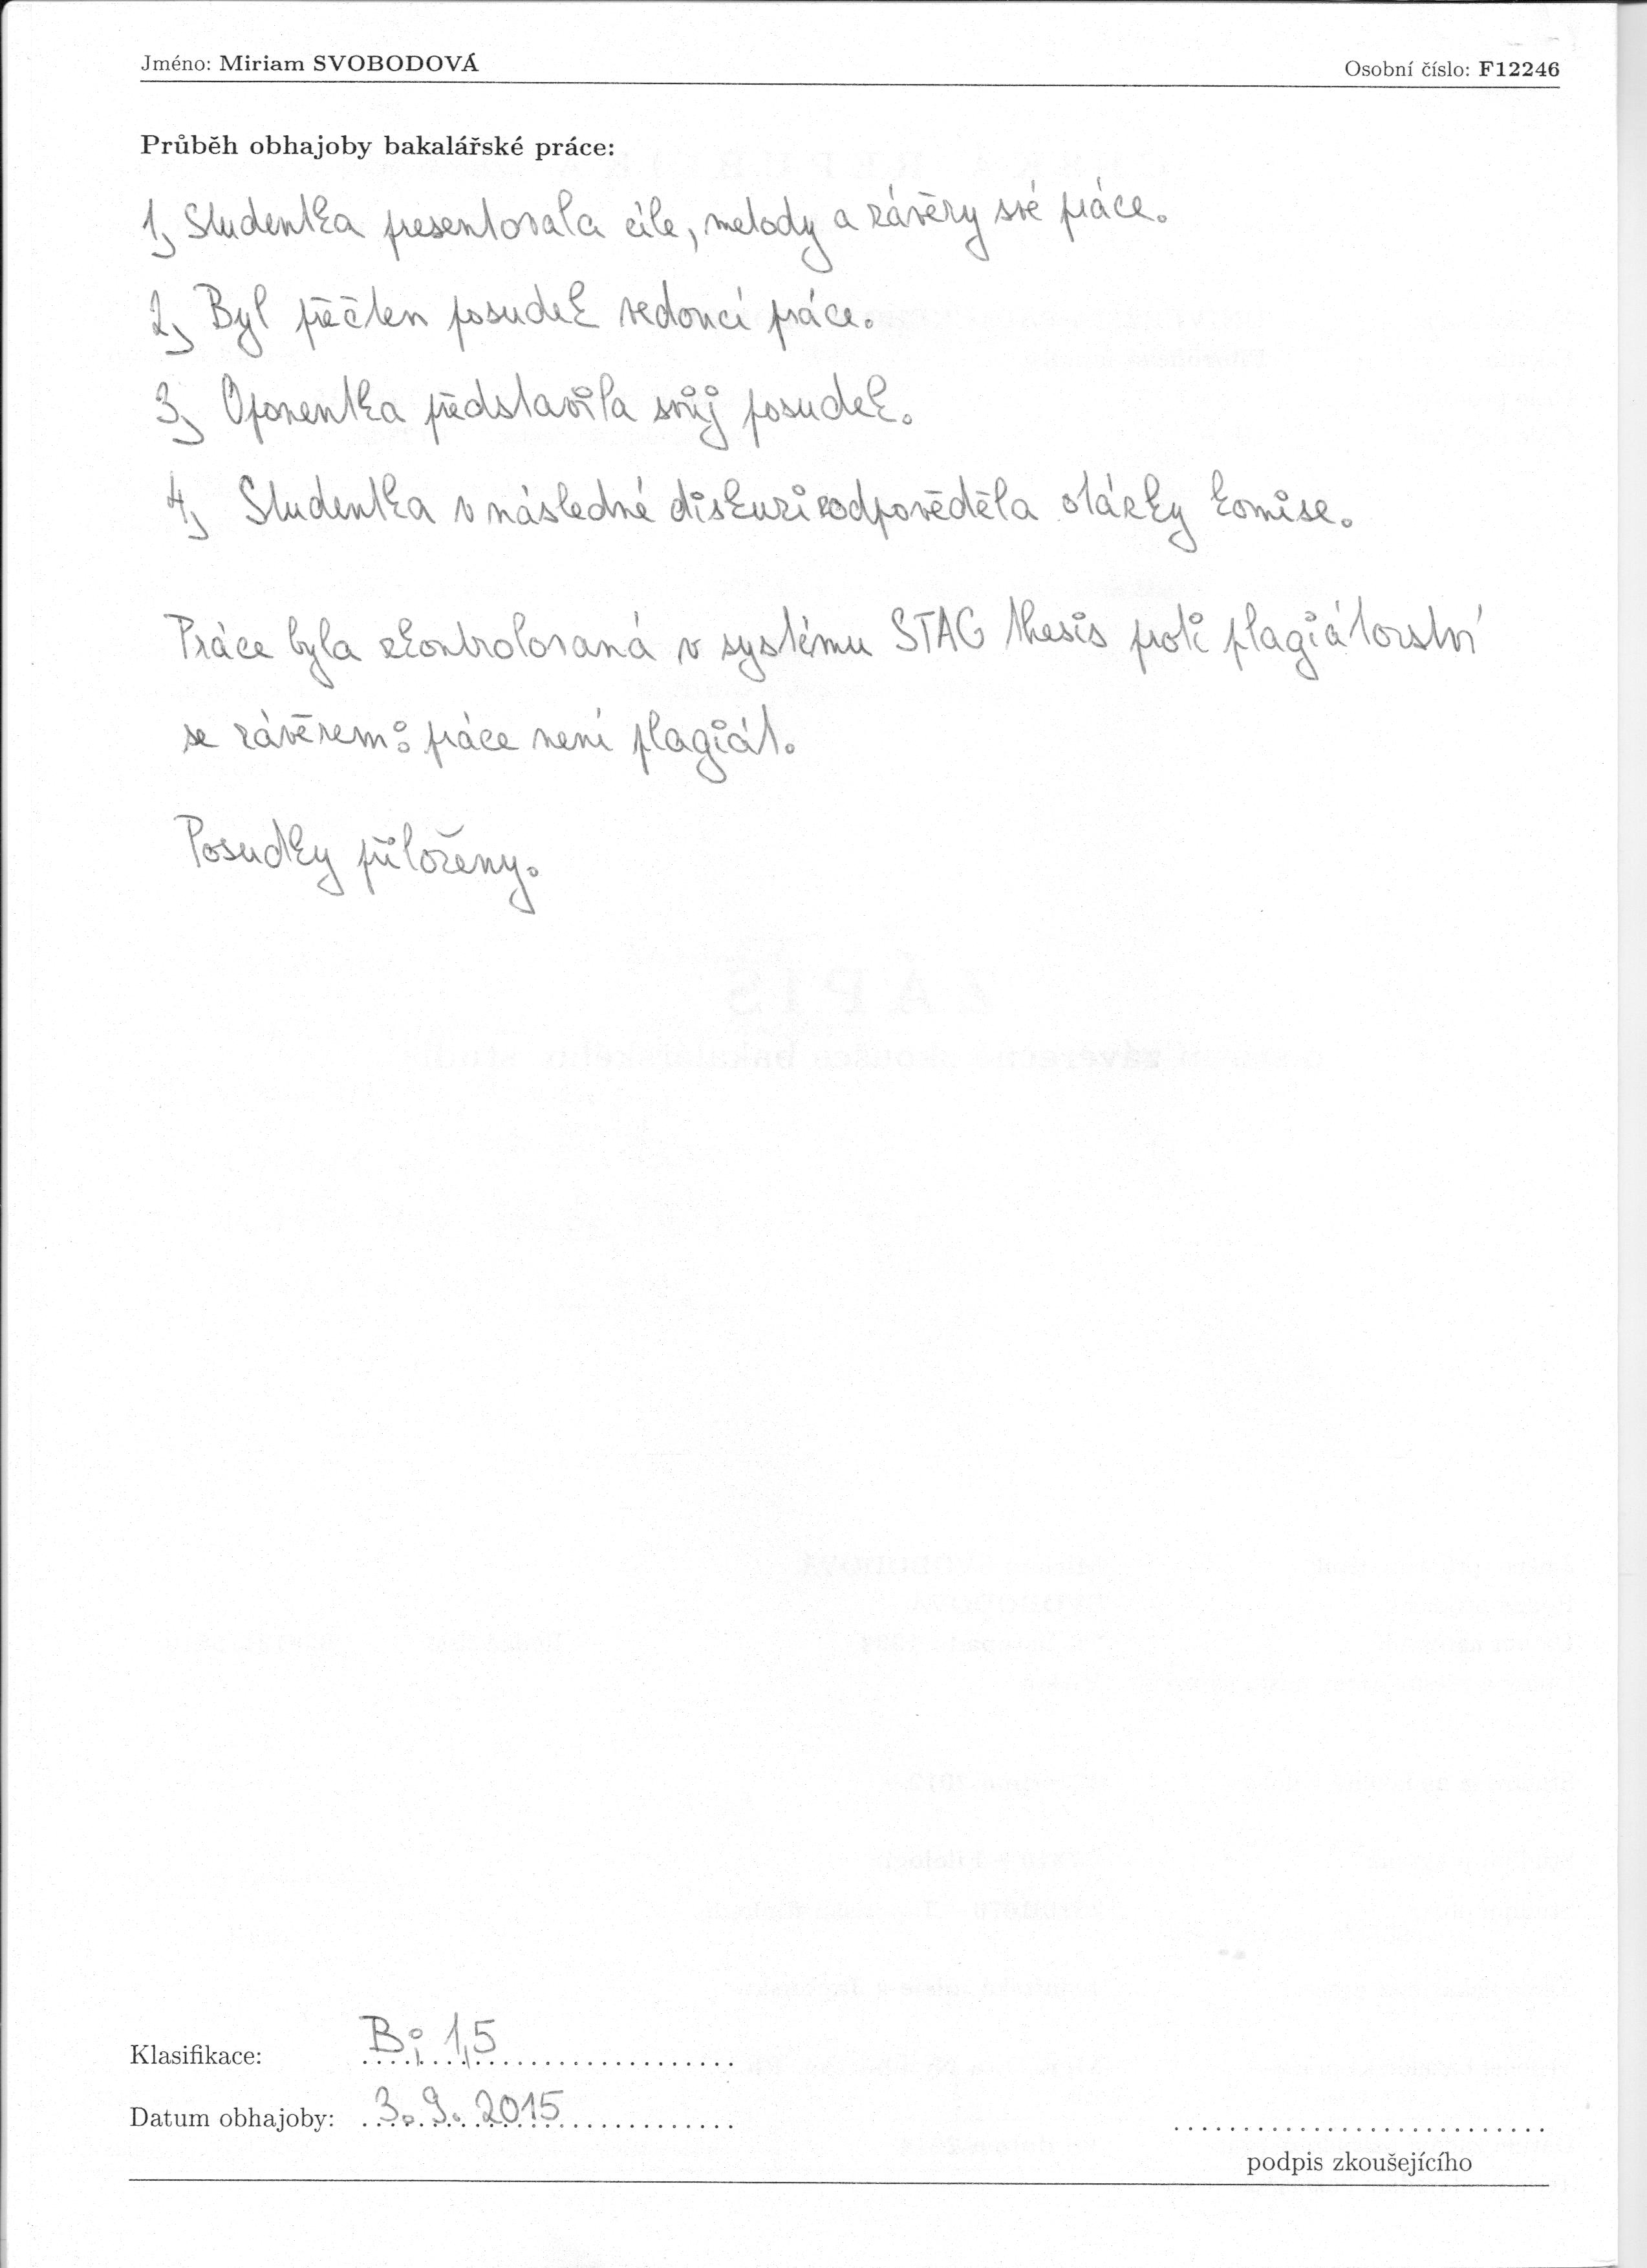 Jméno: Miriam SVOBODOVÁ Osobní číslo: F12246
Průběh obhajoby bakalářské práce:
1, Studentka presentovala cíle, metody a závěry své práce.
2, Byl přečten posudek vedoucí práce.
3, Oponentka představila svůj posudek.
4, Studentka v následné diskuzi zodpověděla otázky komise.
Práce byla zkontrolovaná v systému STAG thesis proti plagiátorství
se závěrem: práce není plagiát.
Posudky přiloženy.
Klasifikace: B; 1,5
Datum obhajoby: 3. 9. 2015
podpis zkoušejícího